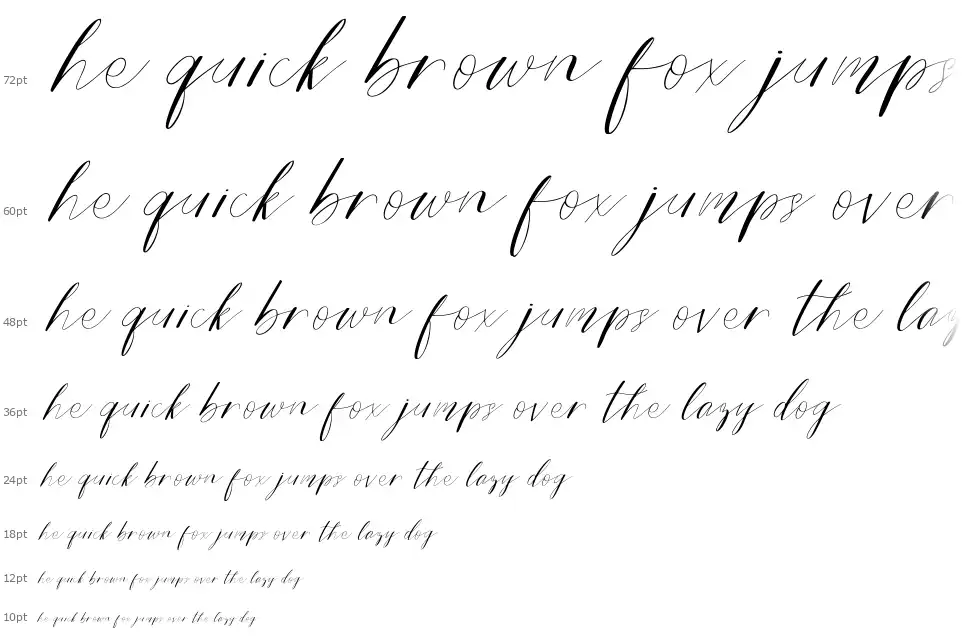 72pt he quick brown fox jumps
60pt he quick brown fox jumps over
48pt he quick brown fox jumps over the lazy
36pt he quick brown fox jumps over the lazy dog
24pt he quick brown fox jumps over the lazy dog
18pt he quick brown fox jumps over the lazy dog
12pt he quick brown fox jumps over the lazy dog
10pt he quick brown fox jumps over the lazy dog